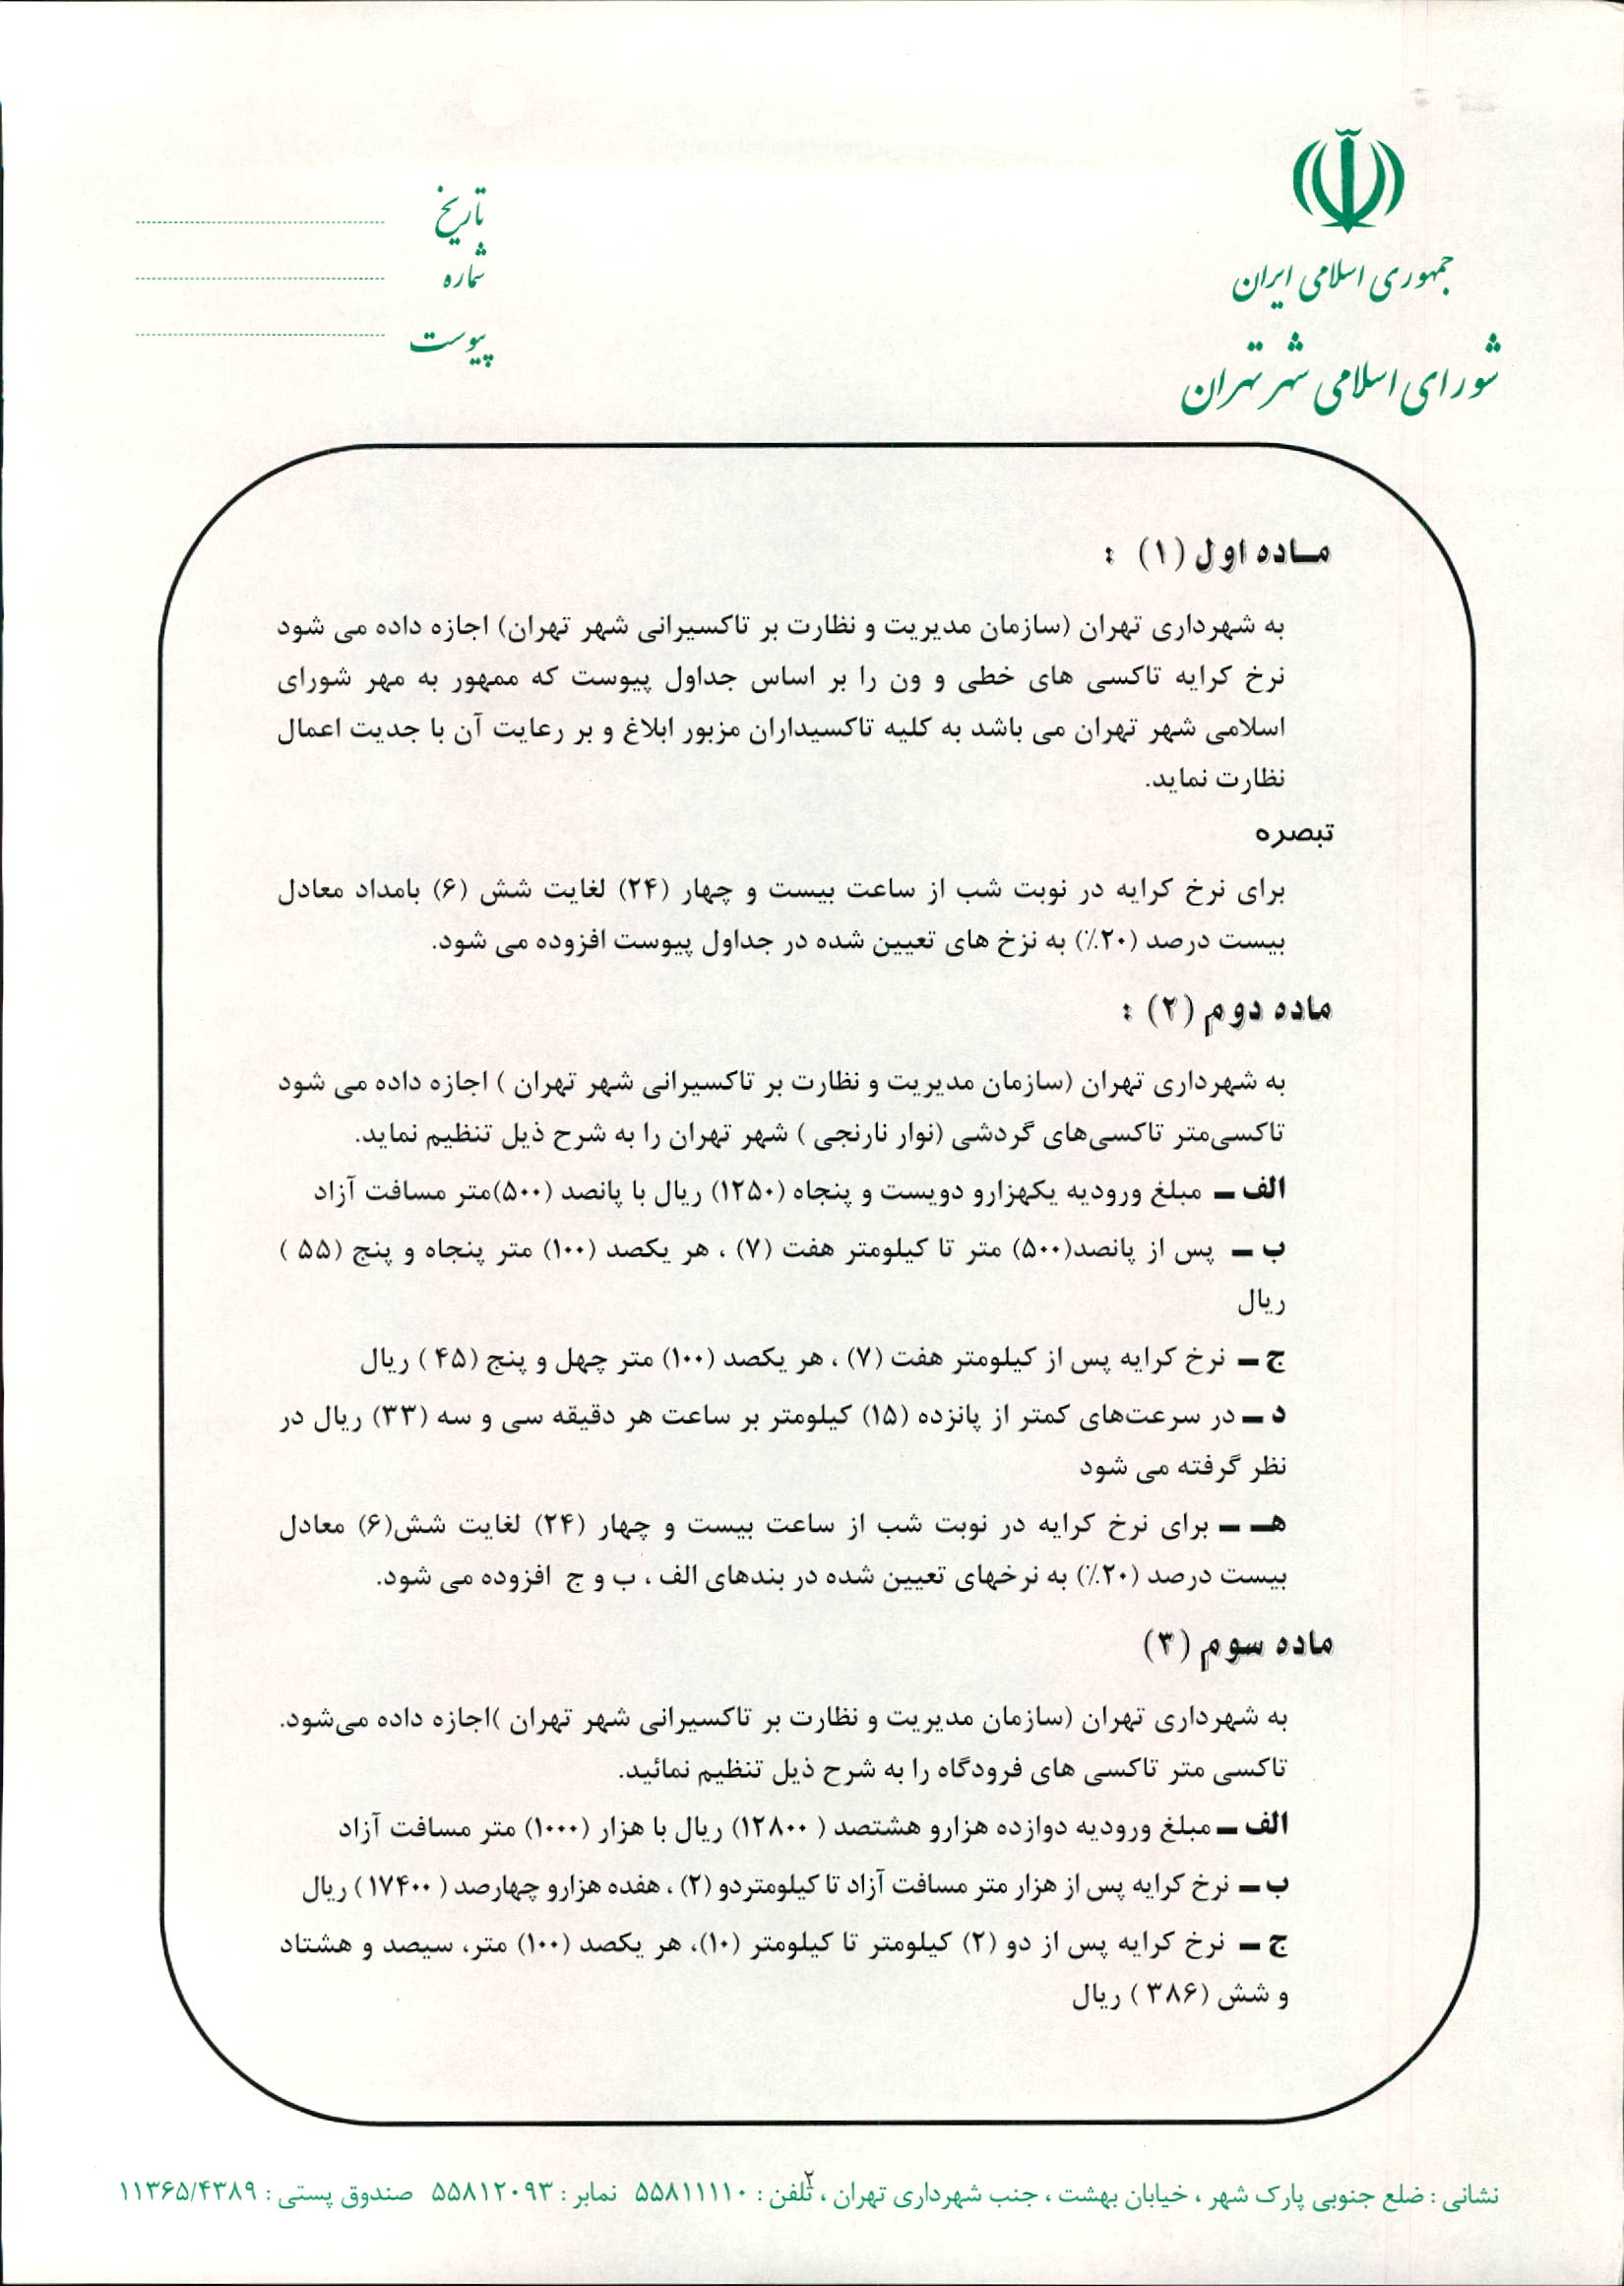 جمهوری اسلامی ایران
شورای اسلامی شهر تهران
تاریخ
شماره
پیوست
مـاده اول (۱) :
به شهرداری تهران (سازمان مدیریت و نظارت بر تاکسیرانی شهر تهران) اجازه داده می شود
نرخ کرایه تاکسی های خطی و ون را بر اساس جداول پیوست که ممهور به مهر شورای
اسلامی شهر تهران می باشد به کلیه تاکسیداران مزبور ابلاغ و بر رعایت آن با جدیت اعمال
نظارت نماید.
تبصره
برای نرخ کرایه در نوبت شب از ساعت بیست و چهار (۲۴) لغایت شش (۶) بامداد معادل
بیست درصد (۲۰٪) به نزخ های تعیین شده در جداول پیوست افزوده می شود.
ماده دوم (۲) :
به شهرداری تهران (سازمان مدیریت و نظارت بر تاکسیرانی شهر تهران ) اجازه داده می شود
تاکسی‌متر تاکسی‌های گردشی (نوار نارنجی ) شهر تهران را به شرح ذیل تنظیم نماید.
الف ـ مبلغ ورودیه یکهزارو دویست و پنجاه (۱۲۵۰) ریال با پانصد (۵۰۰)متر مسافت آزاد
ب ـ پس از پانصد(۵۰۰) متر تا کیلومتر هفت (۷) ، هر یکصد (۱۰۰) متر پنجاه و پنج (۵۵ )
ریال
ج ـ نرخ کرایه پس از کیلومتر هفت (۷) ، هر یکصد (۱۰۰) متر چهل و پنج (۴۵ ) ریال
د ـ در سرعت‌های کمتر از پانزده (۱۵) کیلومتر بر ساعت هر دقیقه سی و سه (۳۳) ریال در
نظر گرفته می شود
هـ ـ برای نرخ کرایه در نوبت شب از ساعت بیست و چهار (۲۴) لغایت شش(۶) معادل
بیست درصد (۲۰٪) به نرخهای تعیین شده در بندهای الف ، ب و ج افزوده می شود.
ماده سوم (۳)
به شهرداری تهران (سازمان مدیریت و نظارت بر تاکسیرانی شهر تهران )اجازه داده می‌شود.
تاکسی متر تاکسی های فرودگاه را به شرح ذیل تنظیم نمائید.
الف ـ مبلغ ورودیه دوازده هزارو هشتصد ( ۱۲۸۰۰) ریال با هزار (۱۰۰۰) متر مسافت آزاد
ب ـ نرخ کرایه پس از هزار متر مسافت آزاد تا کیلومتردو (۲) ، هفده هزارو چهارصد ( ۱۷۴۰۰) ریال
ج ـ نرخ کرایه پس از دو (۲) کیلومتر تا کیلومتر (۱۰)، هر یکصد (۱۰۰) متر، سیصد و هشتاد
و شش (۳۸۶ ) ریال
۲
نشانی : ضلع جنوبی پارک شهر ، خیابان بهشت ، جنب شهرداری تهران ، تلفن : ۵۵۸۱۱۱۱۰ نمابر : ۵۵۸۱۲۰۹۳ صندوق پستی : ۱۱۳۶۵/۴۳۸۹